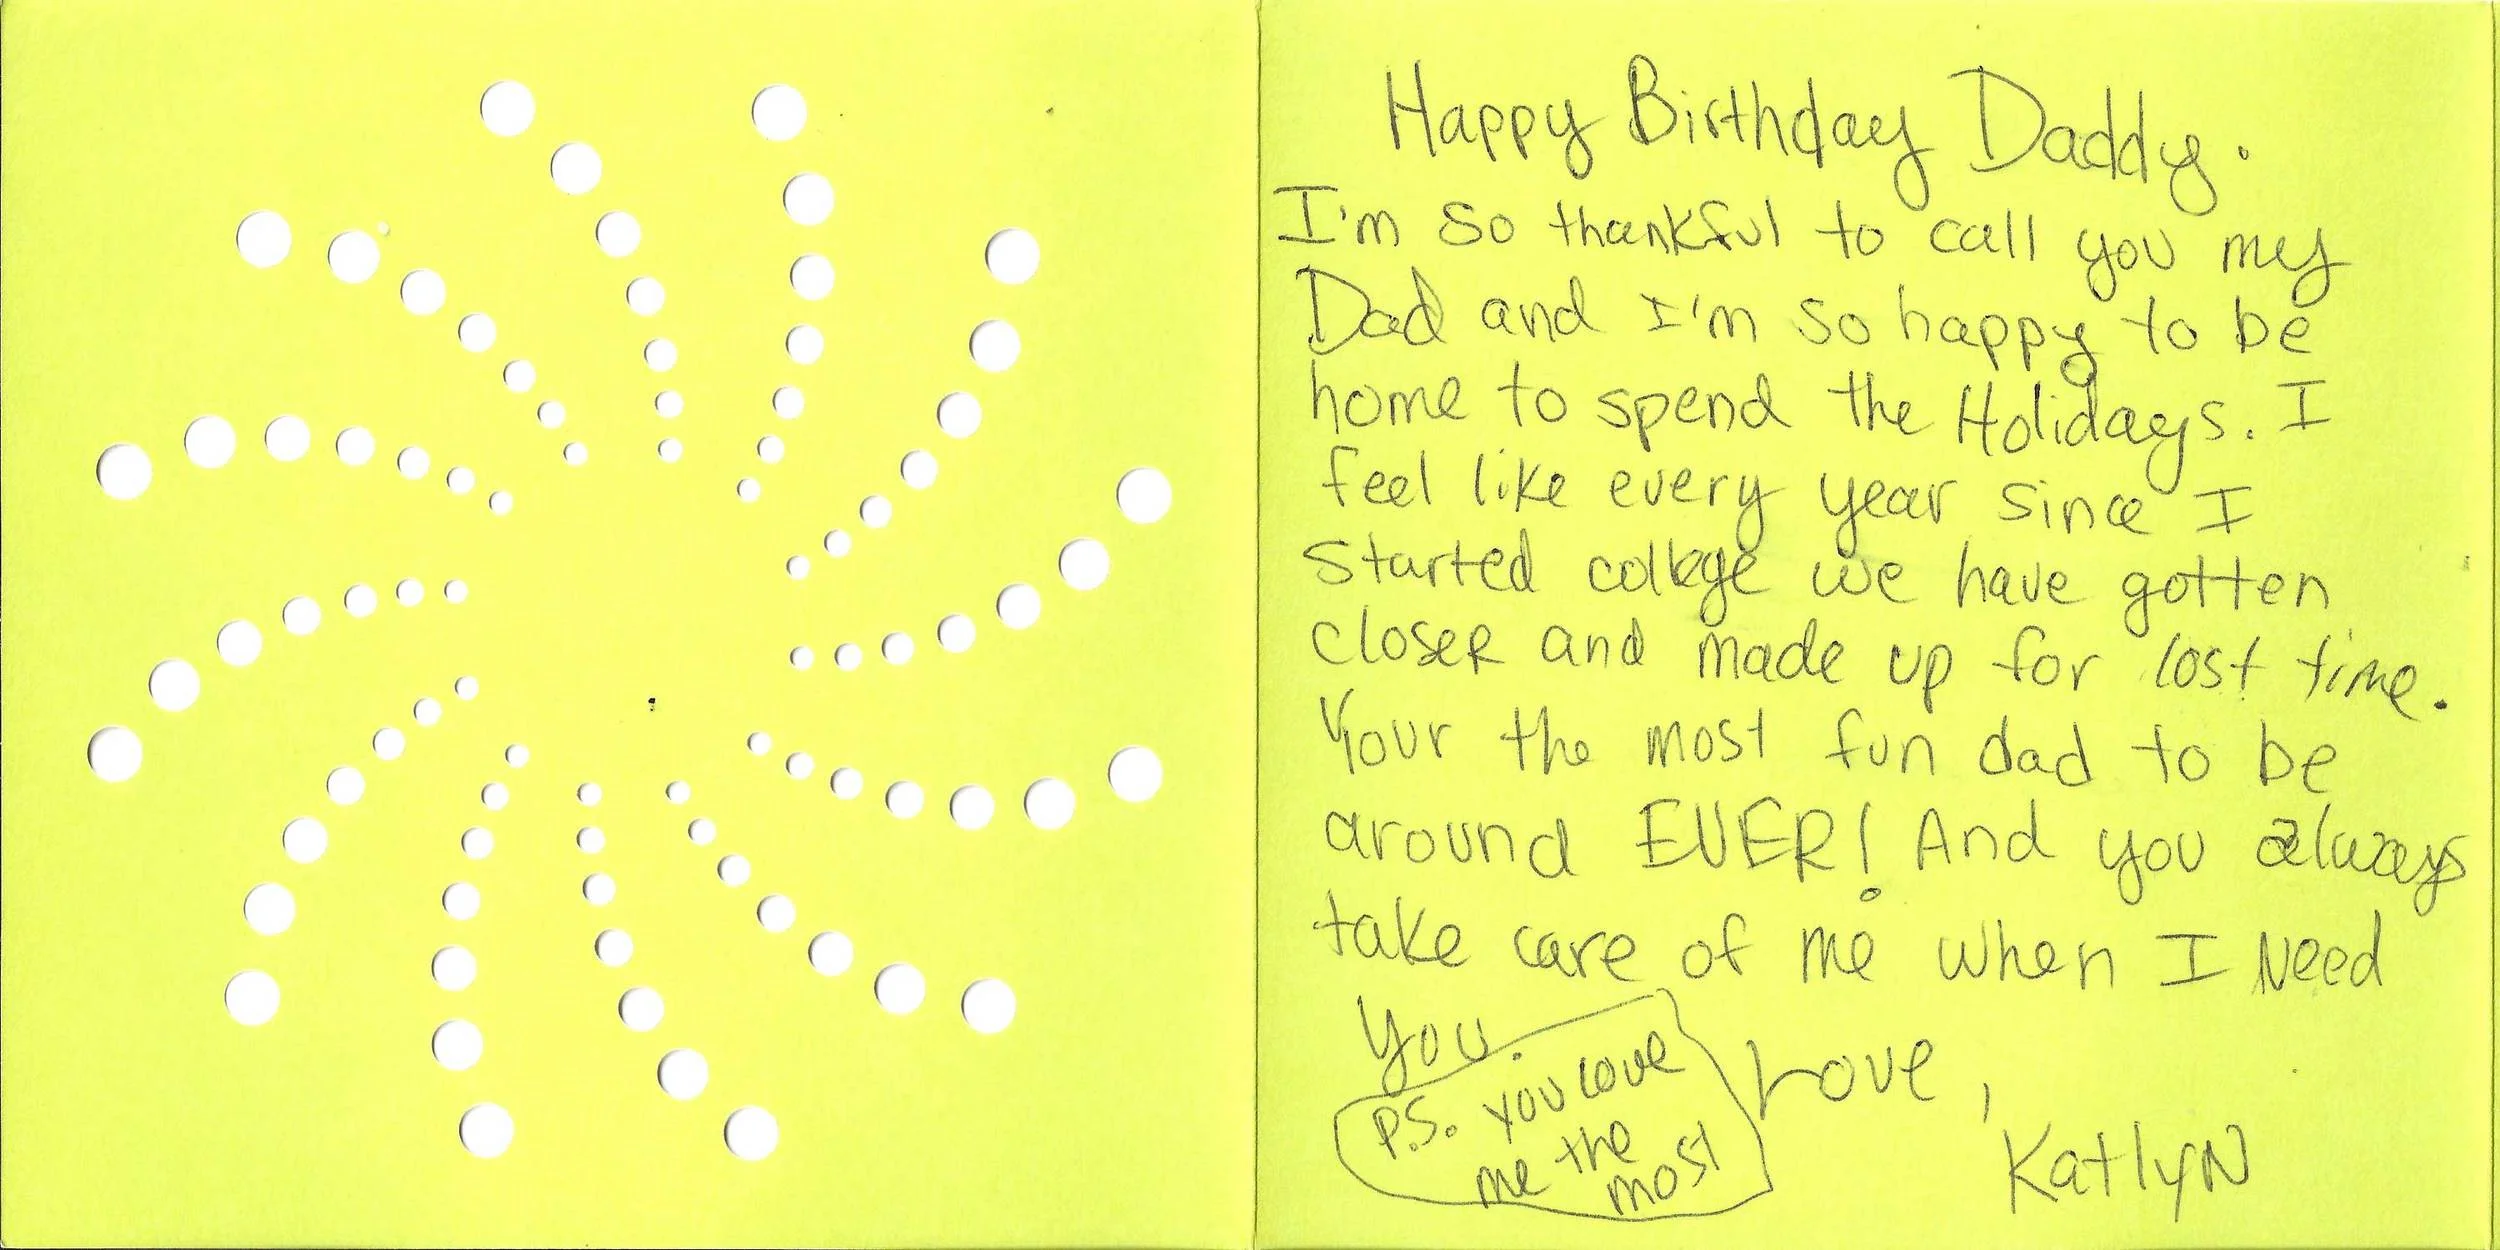 Happy Birthday Daddy.
I'm so thankful to call you my
Dad and I'm so happy to be
home to spend the Holidays. I
feel like every year since I
started college we have gotten
closer and made up for lost time.
Your the most fun dad to be
around EVER! And you always
take care of me when I Need
you.
P.S. you love
me the
most
Love,
KatlyN